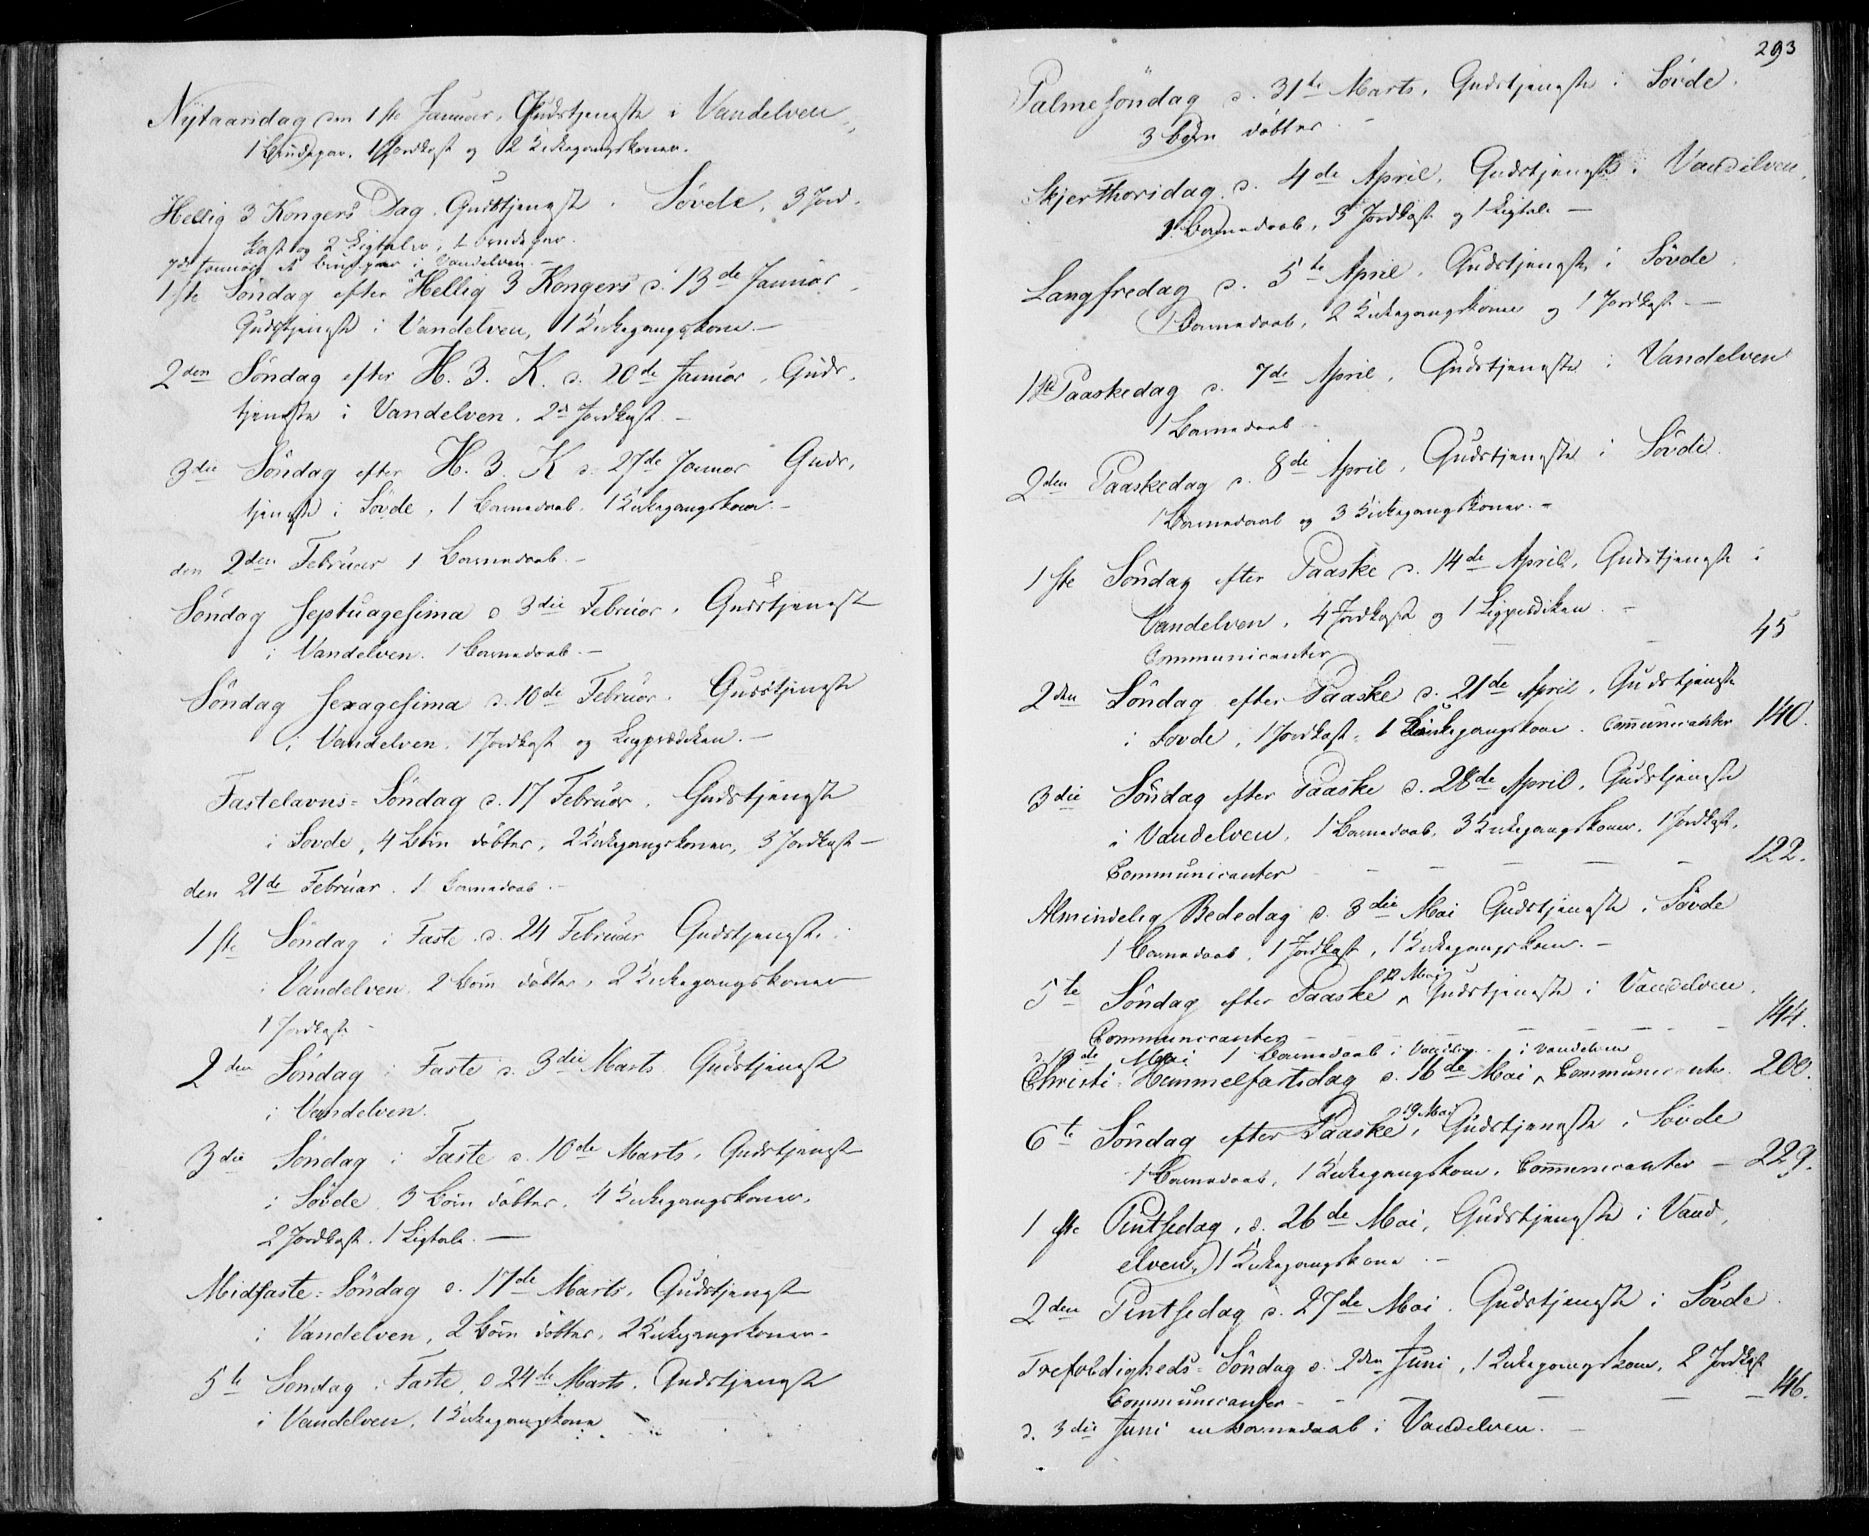 Nÿtaarsdag den 1ste Januar, Gudstjeneste i Vandelven
1 Brudepar, 1 Jordkast og 2 Kirkegangskoner.
Hellig 3 Kongers Dag. Gudstjeneste i Søvde, 3 Jord-
kast og 2 Ligtaler, 1 Brudepar.
7de Januar et Brudepar i Vandelven. –
1ste Søndag efter Hellig 3 Kongers d. 13de Januar
Gudstjeneste i Vandelven, 1 Kirkegangskone. –
2den Søndag efter H. 3. K. d. 20de Januar, Guds-
tjeneste i Vandelven, 2 Jordkast. –
3die Søndag efter H. 3. K d. 27de Januar Guds-
tjeneste i Søvde, 1 Barnedaab, 1 Kirkegangskone. –
den 2den Februar 1 Barnedaab. –
Søndag Septuagesima d 3die Februar, Gudstjeneste
i Vandelven. 1 Barnedaab. –
Søndag Sexagesima d. 10de Februar. Gudstjeneste
i Vandelven. 1 Jordkast og Ligprædiken. –
Fastelavns-Søndag d. 17 Februar, Gudstjeneste
i Søvde, 4 Børn døbter, 2 Kirkegangskoner, 3 Jordkast –
den 21de Februar. 1 Barnedaab. –
1ste Søndag i Faste d. 24 Februar Gudstjeneste i
Vandelven 2 Børn døbter, 2 Kirkegangskoner
1 Jordkast –
2den Søndag i Faste d. 3die Marts Gudstjeneste
i Vandelven.
3die Søndag i Faste d. 10de Marts, Gudstjeneste
i Søvde, 3 Børn døbter, 4 Kirkegangskoner,
2 Jordkast. 1 Ligtale. –
Midfaste-Søndag d. 17de Marts, Gudstjeneste
i Vandelven, 2 Børn døbter, 2 Kirkegangskoner.
5te Søndag i Faste, d 24de Marts. Gudstjeneste
i Vandelven, 1 Kirkegangskone
293
Palmesøndag d. 31te Marts, Gudstjeneste i Søvde.
3 Børn døbter. –
Skjerthorsdag d. 4de April, Gudstjeneste i Vandelven,
Barnedaab, 3 Jordkast og 1 Ligtale –
Langfredag d. 5te April, Gudstjeneste i Søvde
1 Barnedaab, 2 Kirkegangskoner og 1 Jordkast –
1ste Paaskedag d. 7de April, Gudstjeneste i Vandelven
1 Barnedaab
2den Paaskedag d. 8de April, Gudstjeneste i Søvde.
1 Barnedaab og 3 Kirkegangskoner. –
1ste Søndag efter Paaske d. 14de April, Gudstjeneste i
Vandelven, 4 Jordkast og 1 Ligprædiken. –
Communicanter – 45
2den Søndag efter Paaske d. 21de April, Gudstjeneste
i Søvde, 1 Jordkast, 1 Kirkegangskone. Communicanter 140.
3die Søndag efter Paaske d. 28de April, Gudstjeneste
i Vandelven, 1 Barnedaab, 3 Kirkegangskoner, 1 Jordkast,
Communicanter – – – – – 122.
Almindelig Bededag d. 3die Mai Gudstjeneste i Søvde
1 Barnedaab, 1 Jordkast, 1 Kirkegangskone. –
5te Søndag efter Paaske 12 Mai Gudstjeneste i Vandelven.
Communicanter – – – – – 144.
d. 13de Mai 1 Barnedaab i Vandelven. i Vandelven
Christi Himmelfartsdag d. 16de Mai, Communicanter 200.
6te Søndag efter Paaske, 19 Mai Gudstjeneste i Søvde
1 Barnedaab, 1 Kirkegangskone. Communicanter – 229.
1ste Pintsedag, d. 26de Mai, Gudstjeneste i Vand-
elven, 1 Kirkegangskone. –
2den Pintsedag d. 27de Mai. Gudstjeneste i Søvde
Trefoldigheds-Søndag d. 2den Juni, 1 Kirkegangskone, 2 Jordkast
Communicanter – – – – 146.
d. 3die Juni en Barnedaab i Vandelven. –